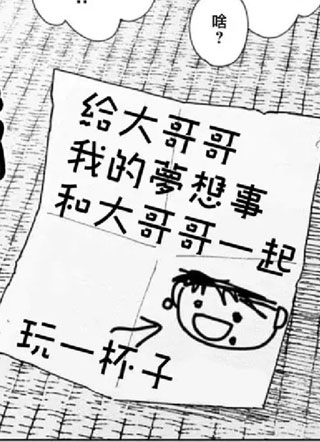 啥?
給大哥哥
我的夢想事
和大哥哥一起
玩一杯子